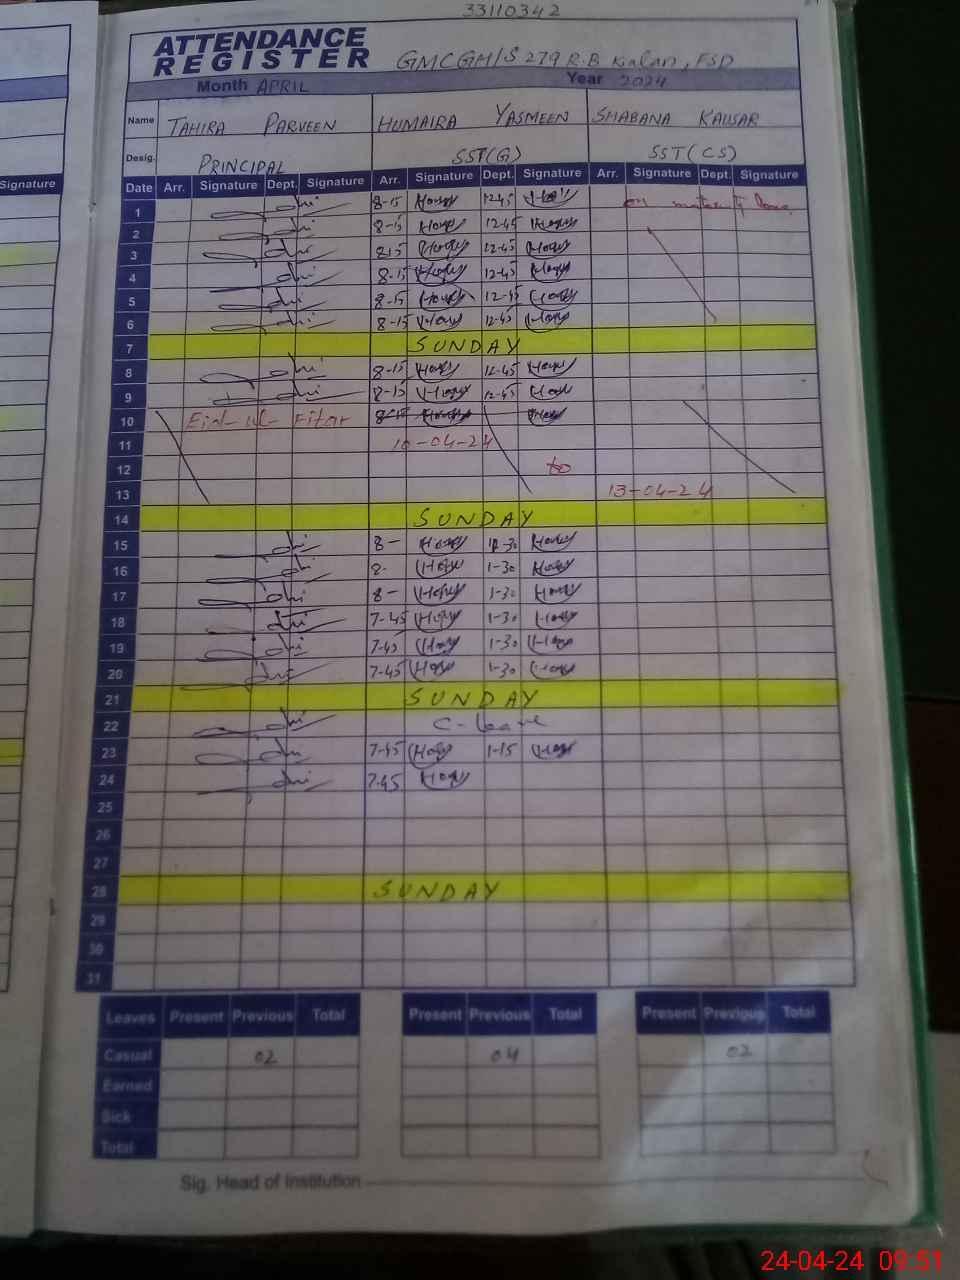 33110342
ATTENDANCE
REGISTER GMCGH/S 279 R.B Kalan, FSD
Month APRIL Year 2024
Name TAHIRA PARVEEN HUMAIRA YASMEEN SHABANA KAUSAR
Desig. PRINCIPAL SST(G) SST(CS)
Signature
Date Arr. Signature Dept. Signature Arr. Signature Dept. Signature Arr. Signature Dept. Signature
1 8-15 12-45 on maternity leave
2 8-15 12-45
3 8-15 12-45
4 8-15 12-45
5 8-15 12-45
6 8-15 12-45
7 SUNDAY
8 8-15 12-45
9 8-15 12-45
10 Eid-ul-Fitar 8-15
11 10-04-24
12 to
13 13-04-24
14 SUNDAY
15 8-
16 8- 1-30
17 8- 1-30
18 7-45 1-30
19 7-45 1-30
20 7-45 1-30
21 SUNDAY
22 C-leave
23 7-45 1-15
24 7-45
25
26
27
28 SUNDAY
29
30
31
Leaves Present Previous Total Present Previous Total Present Previous Total
Casual 02 04 02
Earned
Sick
Total
Sig. Head of Institution
24-04-24 09:51